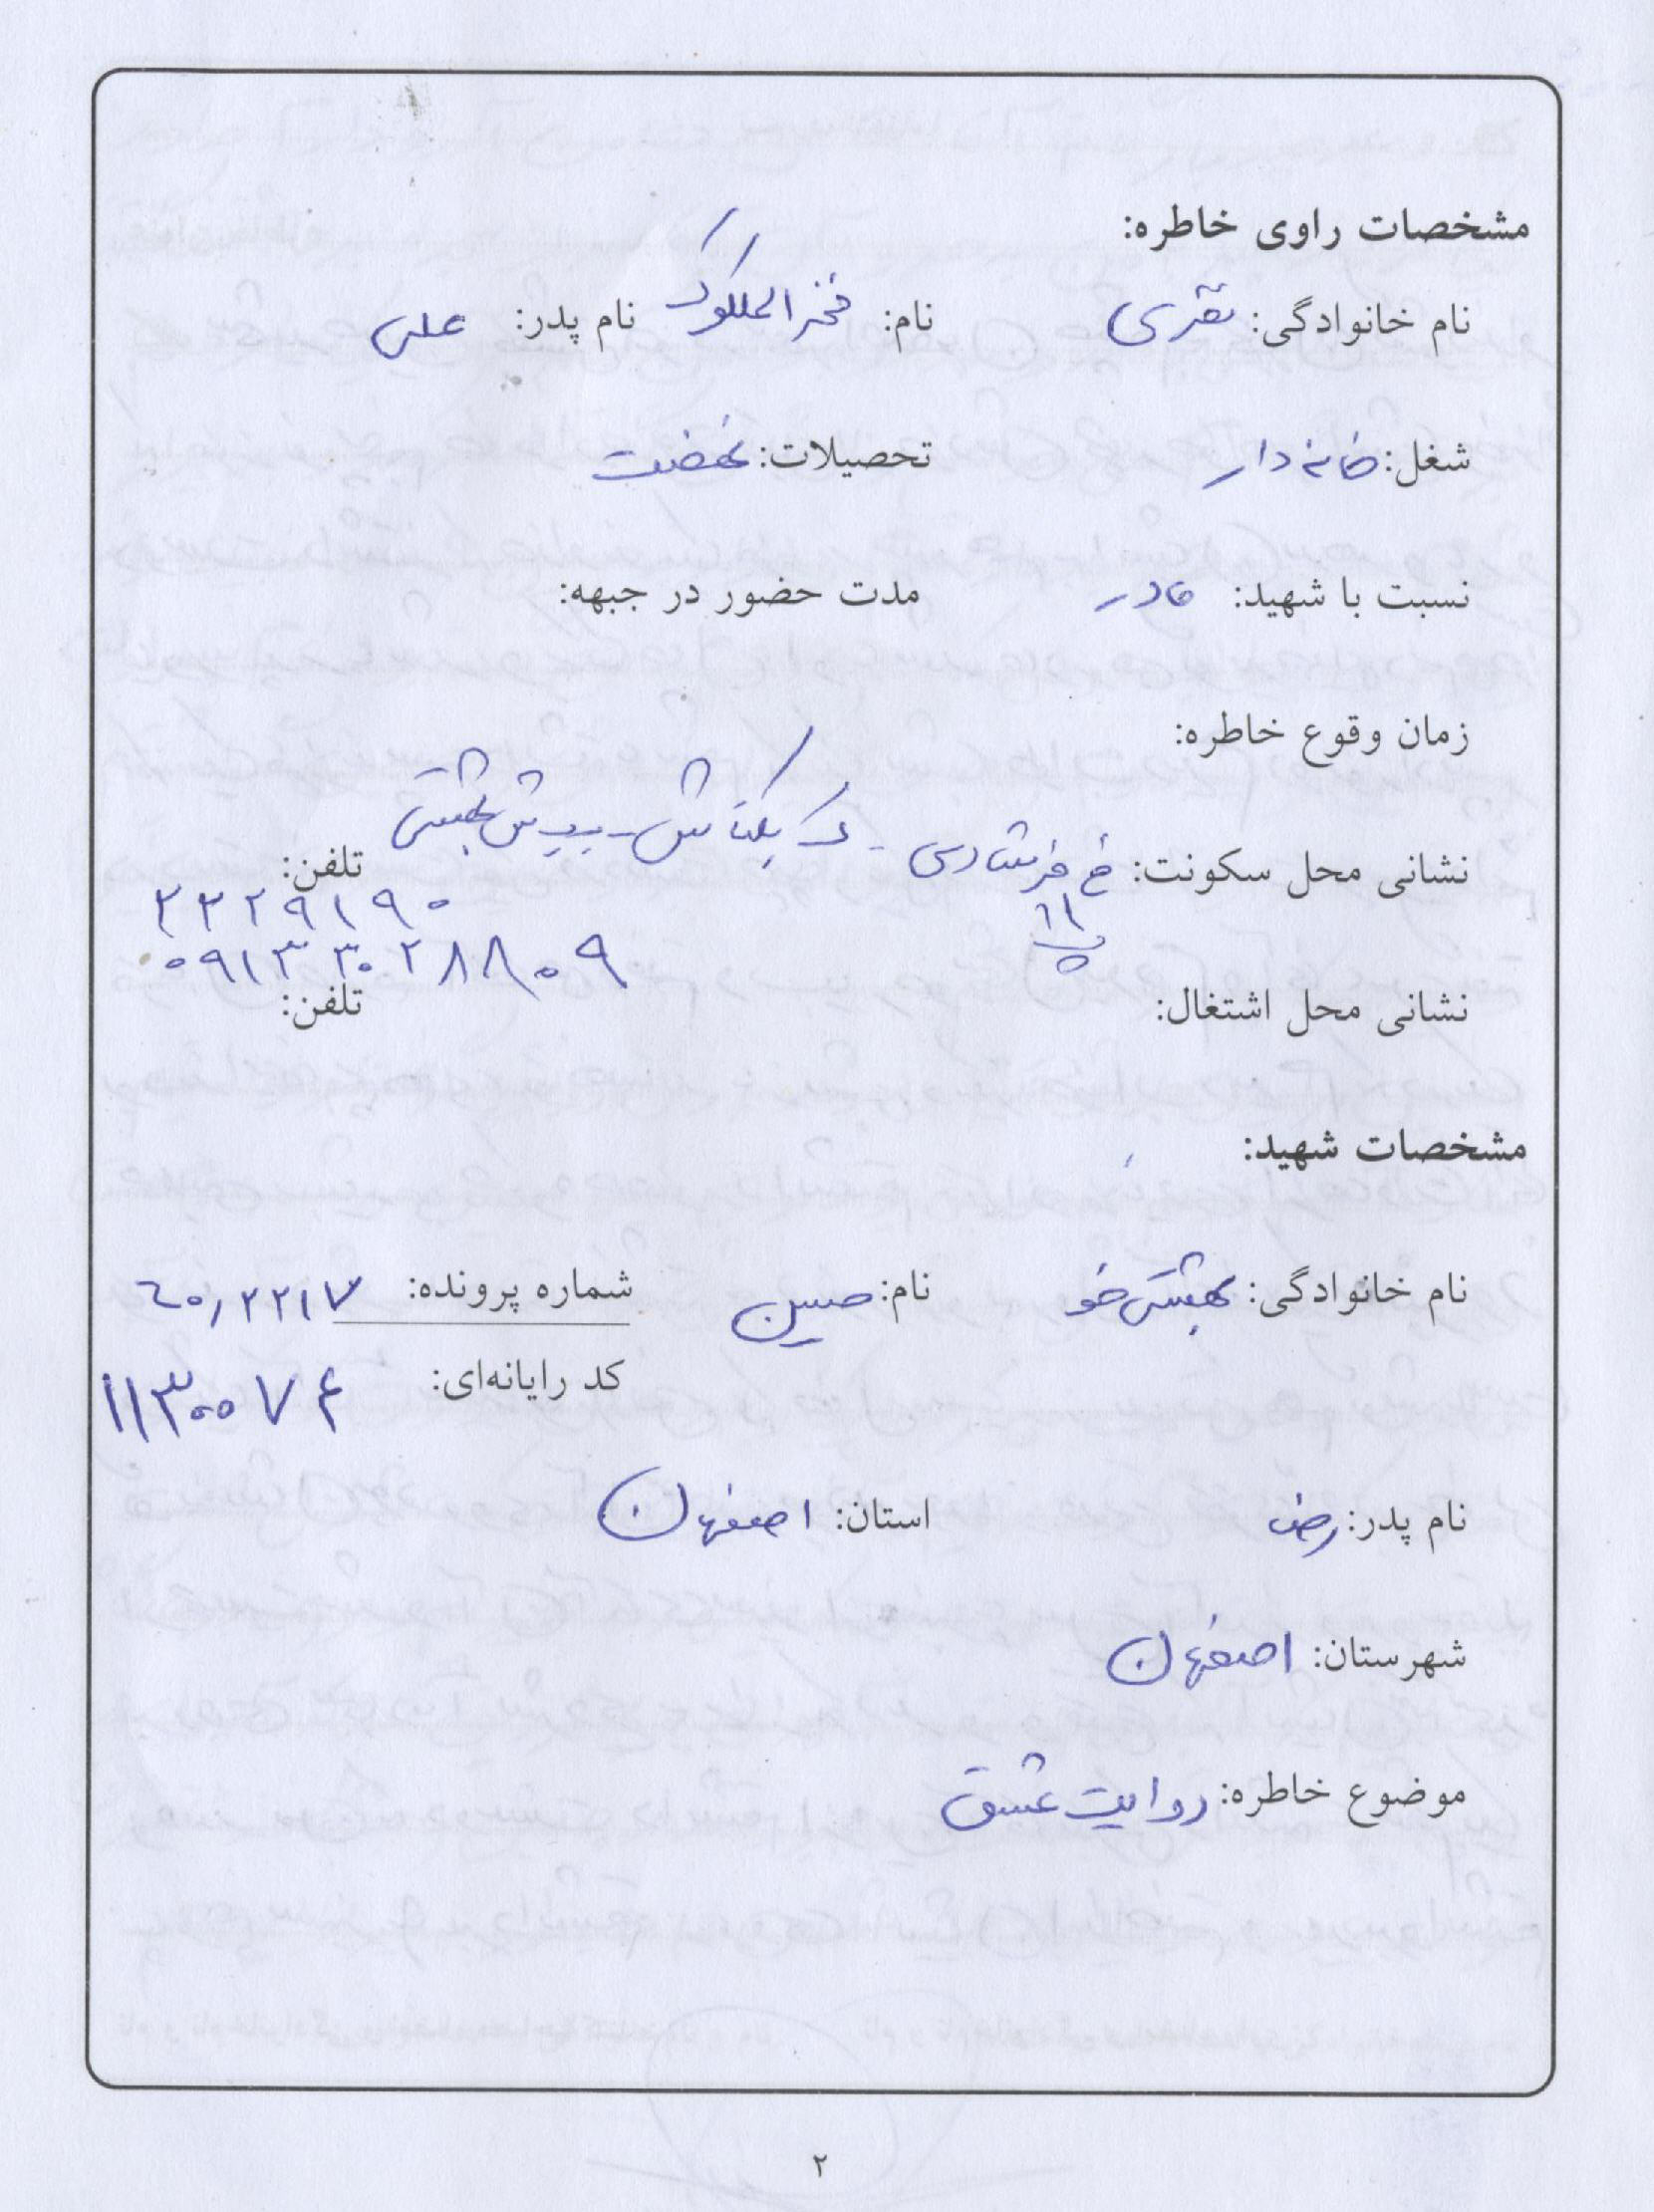 مشخصات راوی خاطره:
نام خانوادگی: نام: فخرالملوک نام پدر: علی
شغل: خانه دار تحصیلات: نهضت
نسبت با شهید: مادر مدت حضور در جبهه:
زمان وقوع خاطره:
نشانی محل سکونت: خ فرشادی - ک بکتاش - بهشتی تلفن:
پ ۱۱ ۲۲۲۹۱۹۰
۰۹۱۳۳۰۲۸۸۰۹
نشانی محل اشتغال: تلفن:
مشخصات شهید:
نام خانوادگی: بهشتی خو نام: حسین شماره پرونده: ۶۰,۲۲۱۷
کد رایانه‌ای: ۱۱۳۰۰۷۴
نام پدر: رضا استان: اصفهان
شهرستان: اصفهان
موضوع خاطره: روایت عشق
۲